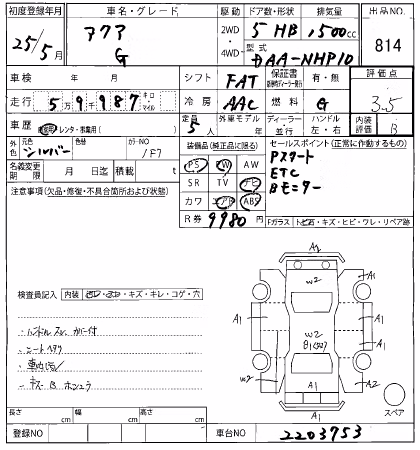 初度登録年月 車名・グレード 駆動 ドア数/形状 排気量 出品NO.
25年5月 アクア G 2WD 4WD 5 HB 1500cc 814
型式 DAA-NHP10
車検 年 月 シフト FAT 保証書 有・無 評価点
走行 5万9千987 キロ・マイル 冷房 AAC 燃料 G 3.5
車歴 自家用・レンタ・事業用( ) 定員 5人 外車モデル年 ディーラー・並行 ハンドル 左・右 内装評価 B
外色 元色 シルバー 色替 カラーNO 1F7 装備品(純正品に限る) セールスポイント(正常に作動するもの)
名義変更期限 月 日迄 積載 t PS PW AW Pスタート
SR TV ナビ ETC
注意事項(欠品・修復・不具合箇所および状態) カワ エアB ABS Bモニター
R券 9980円 Fガラス トビ石・キズ・ヒビ・ワレ・リペア跡
検査員記入 内装 ・キズ・キレ・コゲ・穴
・ハンドルスレ カバー付
・シートヘタリ
A2
A1
W2
A1
A1
A1
W2
W2
A1
A2
A1
A1
スペア
長さ cm 幅 cm 高さ cm
登録NO 車台NO 2203753